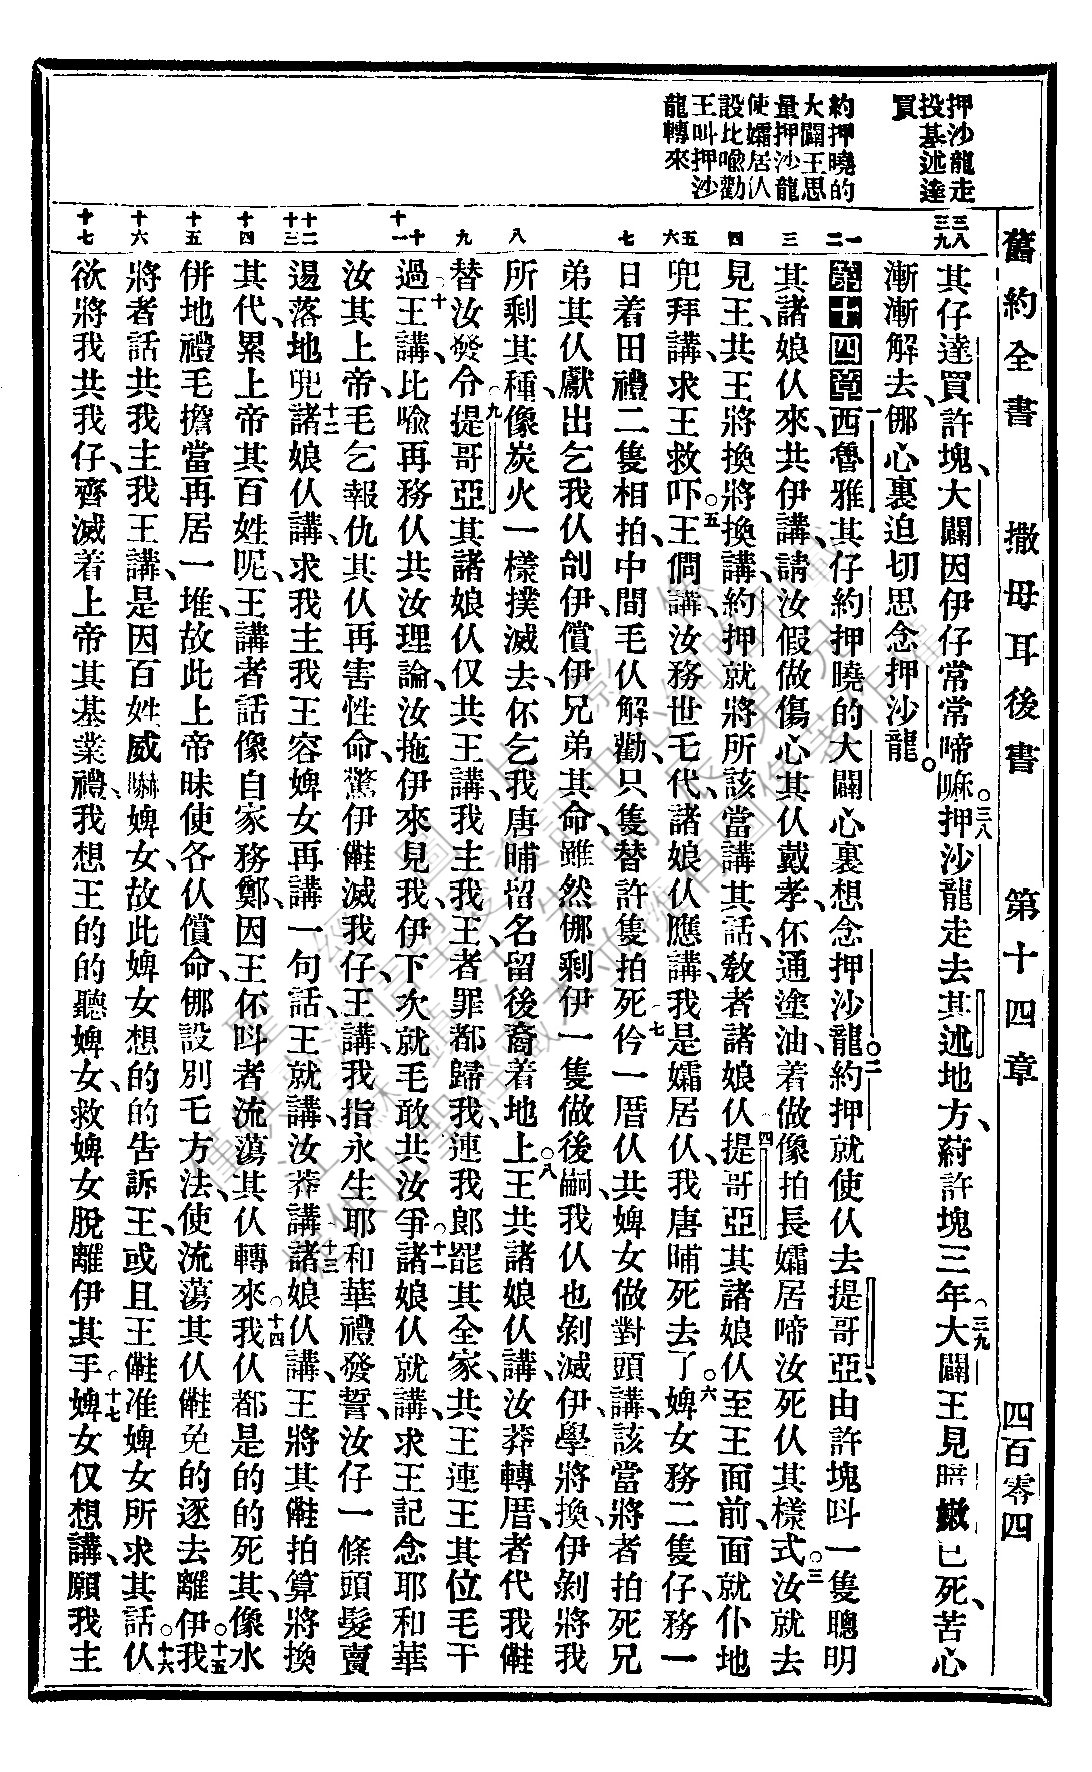 舊約全書　撒母耳後書　第十四章　四百零四
押沙龍走
投基述達
買
約押曉的
大闢王思
量押沙龍
使孀居仈
設比喩勸
王呌押沙
龍轉來
三八
三九
一
二
三
四
五
六
七
八
九
十
十一
十二
十三
十四
十五
十六
十七
其仔達買、許塊、大闢因伊仔常常啼嘛。三八押沙龍走去其述地方、蒔許塊三年。三九大闢王見暗嫩已死、苦心
漸漸解去、㑚心裏迫切思念押沙龍。
第十四章 一西魯雅其仔約押曉的大闢心裏想念押沙龍。二約押就使仈去提哥亞、由許塊呌一隻聰明
其諸娘仈來、共伊講、請汝假做傷心其仈戴孝、伓通塗油、着做像拍長孀居啼汝死仈其樣式。三汝就去
見王、共王將換將換講、約押就將所該當講其話、敎者諸娘仈。四提哥亞其諸娘仈至王面前、面就仆地
兜拜講、求王救吓。五王僩講、汝務世乇代、諸娘仈應講、我是孀居仈、我唐晡死去了。六婢女務二隻仔、務一
日着田禮二隻相拍、中間毛仈解勸、只隻替許隻拍死。七仱一厝仈共婢女做對頭講、該當將者拍死兄
弟其仈獻出乞我仈刣伊、償伊兄弟其命、雖然㑚剩伊一隻做後嗣、我仈也剝滅伊、學將換、伊剝將我
所剩其種、像炭火一樣撲滅去、伓乞我唐晡留名留後裔着地上。八王共諸娘仈講、汝莽轉厝、者代我㒕
替汝發令。九提哥亞其諸娘仈仅共王講、我主我王、者罪都歸我、連我郞罷其全家、共王連王其位毛干
過。十王講、比喩再務仈共汝理論、汝拖伊來見我、伊下次就毛敢共汝爭。十一諸娘仈就講、求王記念耶和華
汝其上帝、毛乞報仇其仈再害性命、驚伊㒕滅我仔、王講、我指永生耶和華禮發誓、汝仔一條頭髮賣
逿落地兜。十二諸娘仈講、求我主我王容婢女再講一句話、王就講、汝莽講。十三諸娘仈講、王將其㒕拍算將換
其代、累上帝其百姓呢、王講者話像自家務鄭、因王伓呌者流蕩其仈轉來。十四我仈都是的的死其、像水
倂地禮毛擔當再居一堆、故此上帝昧使各仈償命、㑚設別乇方法、使流蕩其仈㒕免的逐去離伊。十五我
將者話共我主我王講、是因百姓威嚇婢女、故此婢女想的的告訴王、或且王㒕准婢女所求其話。十六仈
欲將我共我仔、齊滅着上帝其基業禮、我想王的的聽婢女、救婢女脫離伊其手。十七婢女仅想講、願我主